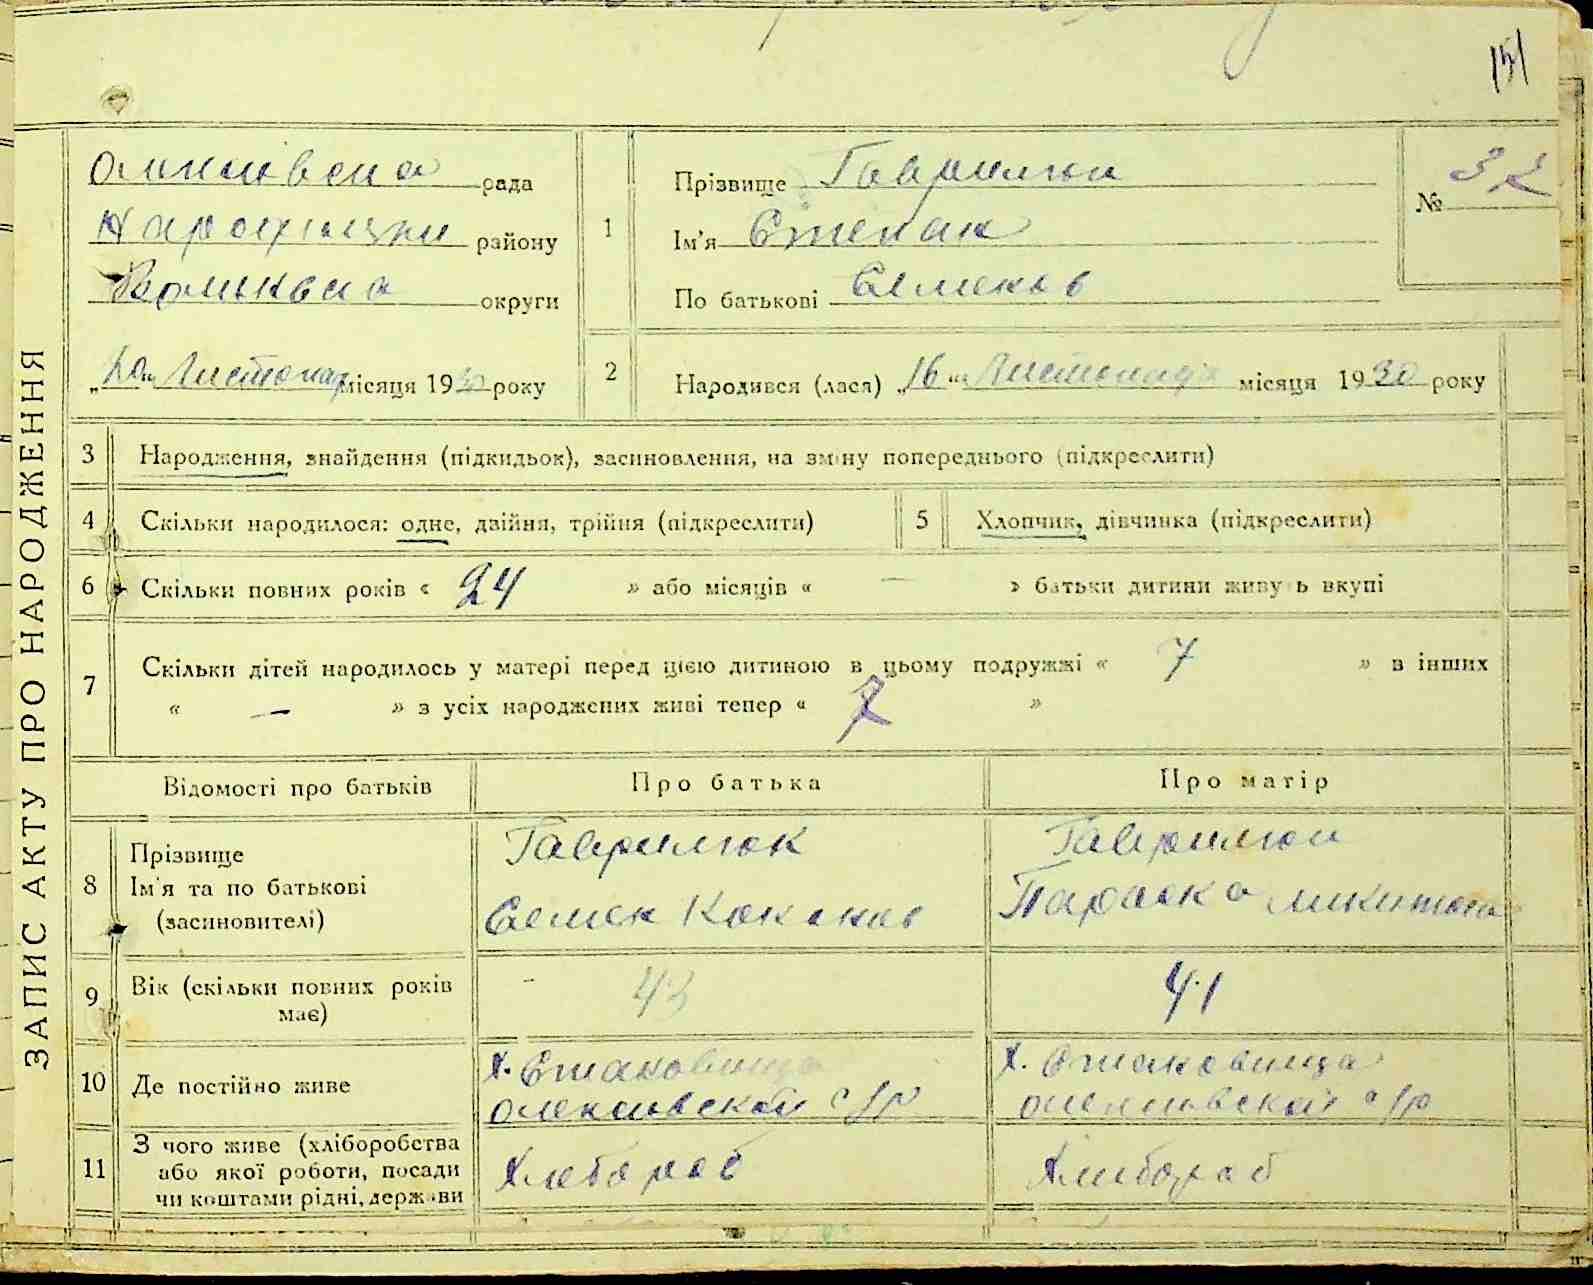 151
ЗАПИС АКТУ ПРО НАРОДЖЕННЯ
рада
району
округи
„20“ Листопад місяця 1930 року
1 Прізвище Гаврилюк
Ім'я Степан
По батькові Семенов
№ 32
2 Народився (лася) „16“ Листопада місяця 1930 року
3 Народження, знайдення (підкидьок), засиновлення, на зміну попереднього (підкреслити)
4 Скільки народилося: одне, двійня, трійня (підкреслити)
5 Хлопчик, дівчинка (підкреслити)
6 Скільки повних років « 24 » або місяців « — » батьки дитини живуть вкупі
7 Скільки дітей народилось у матері перед цією дитиною в цьому подружжі « 7 » в інших
« — » з усіх народжених живі тепер « 7 »
Відомості про батьків Про батька Про матір
8 Прізвище Ім'я та по батькові (засиновителі)
Гаврилюк
Семен
Гаврилюк
Параска Микитова
9 Вік (скільки повних років має) 43 41
10 Де постійно живе
х. Становища
с/р
х. Становища
с/р
11 З чого живе (хліборобства або якої роботи, посади чи коштами рідні, держави
Хлебороб
Хлибороб